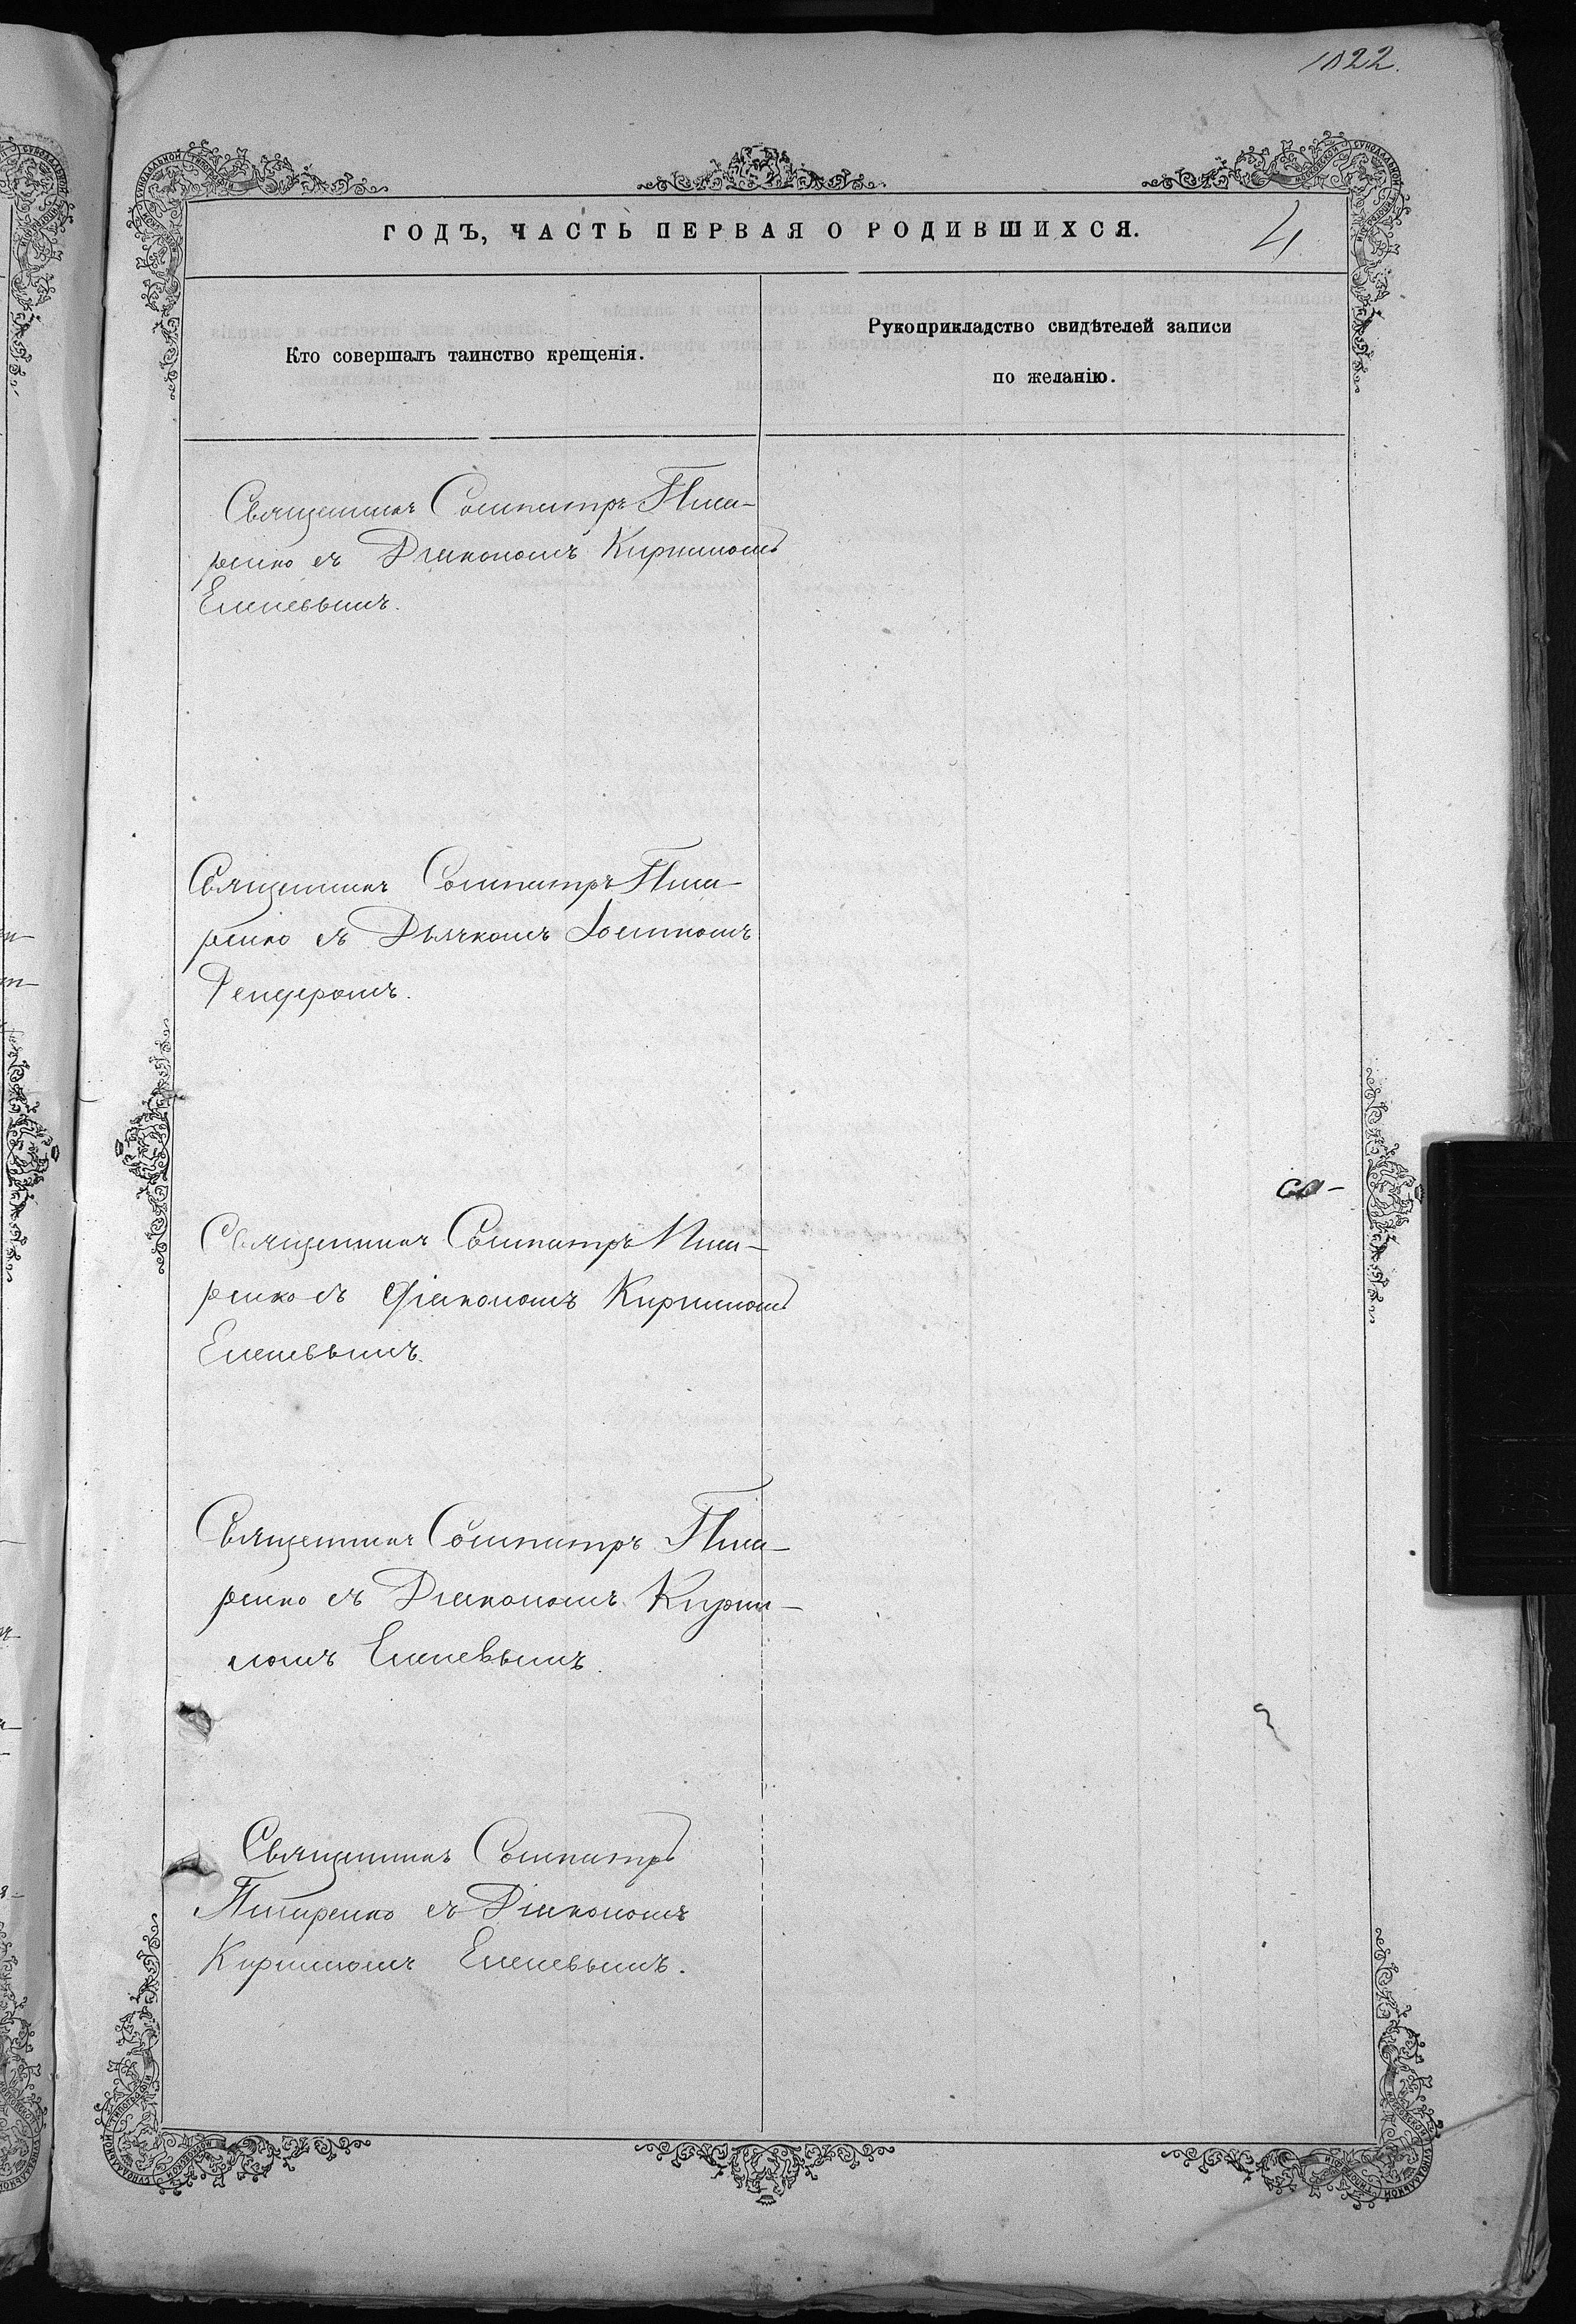 1022.
ГОДЪ, ЧАСТЬ ПЕРВАЯ О РОДИВШИХСЯ.
4
Кто совершалъ таинство крещенія.
Рукоприкладство свидѣтелей записи
по желанію.
Священникъ Сосипатръ Писа-
ренко съ Діакономъ Кирилломъ
Еленевымъ.
Священникъ Сосипатръ Писа-
ренко съ Дьячкомъ
Священникъ Сосипатръ Писа-
ренко съ Діакономъ Кирилломъ
Еленевымъ.
Священникъ Сосипатръ Писа-
ренко съ Діакономъ Кирил-
ломъ Еленевымъ.
Священникъ Сосипатръ
Писаренко съ Діакономъ
Кирилломъ Еленевымъ.